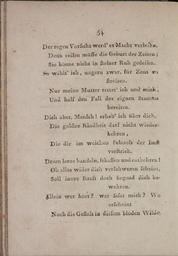 54
Der regen Vorsicht werd' er Macht verleihn.
Denn reifen müsse die Geburt der Zeiten;
Sie könne nicht in ihrer Ruh gedeihn.
So wähl' ich, ungern zwar, für Zeus zu
streiten.
Nur meine Mutter rettet' ich und mich,
Und half den Fall des eignen Stammes
bereiten.
Dich aber, Mensch! erhob' ich über dich.
Die goldne Kindheit darf nicht wieder-
kehren,
Die dir im weichen Schooss der Lust
verstrich.
Drum lerne handeln, schaffen und entbehren!
Ob alles wider dich verschworen scheint,
Soll innre Kraft doch Gegend dich be-
wahren.
Allein wer hört? wer fasst mich? Wo
erscheint
Noch die Gestalt in diesem blöden Wilde